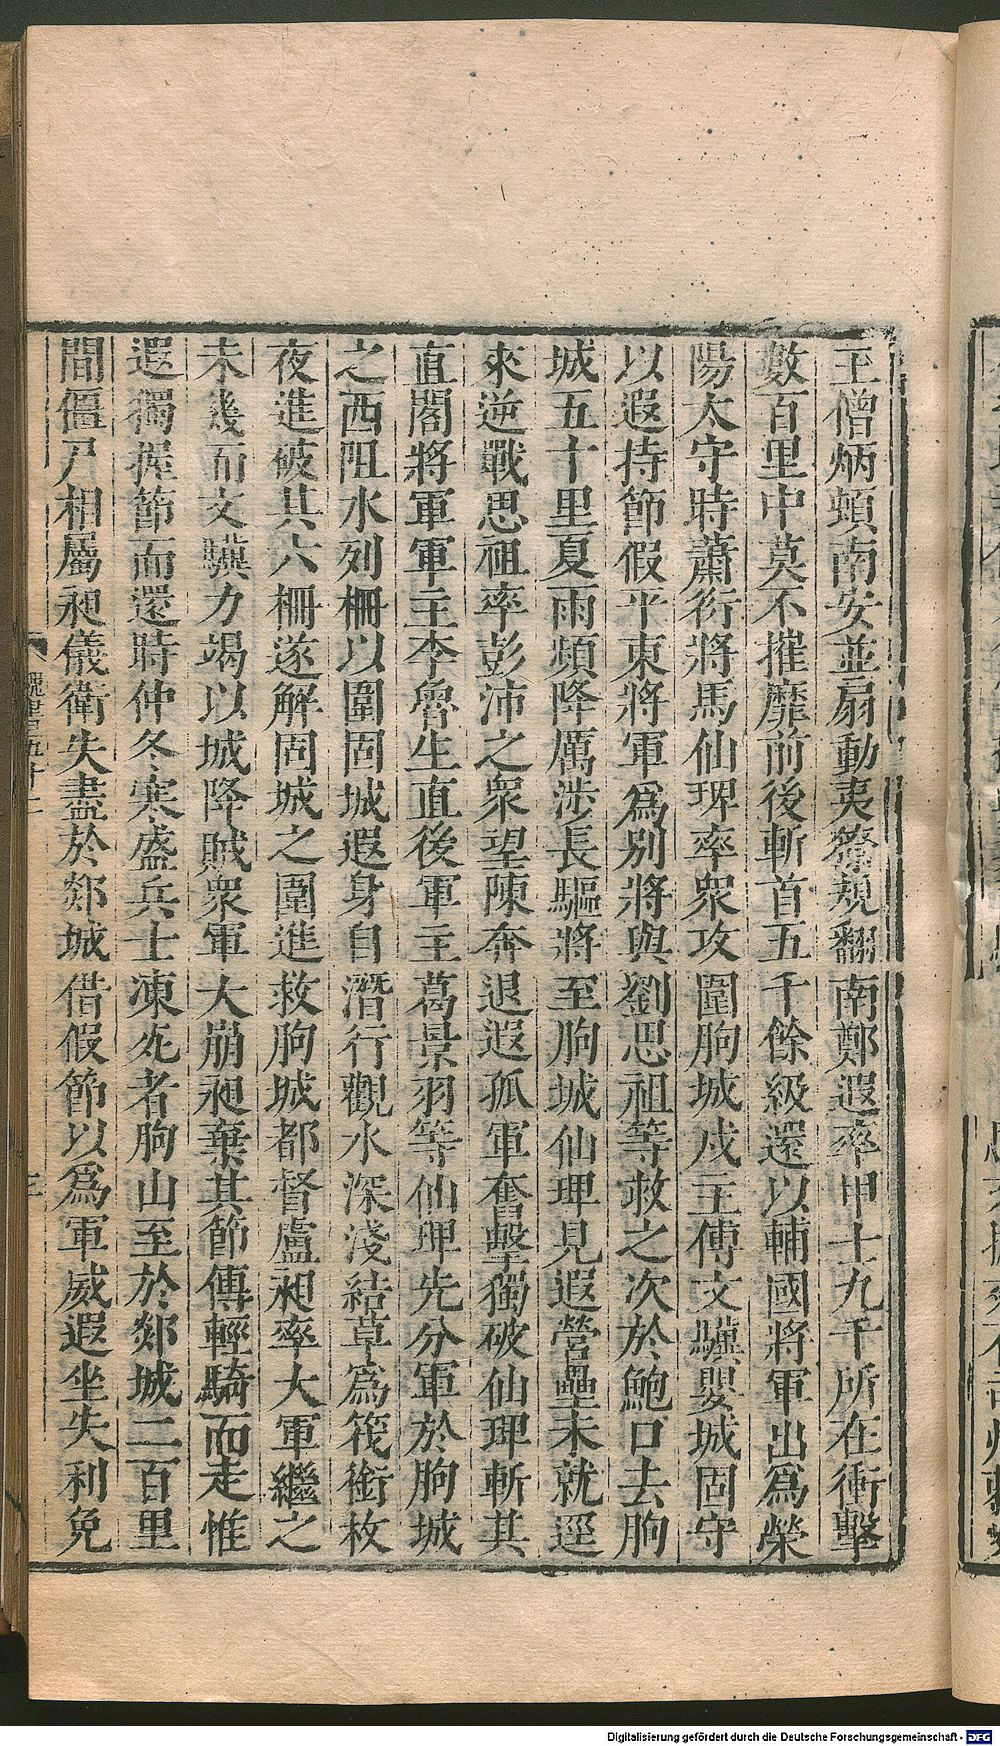 王僧炳頓南安並扇動夷獠規翻南鄭遐率甲士九千所在衝擊
數百里中莫不摧靡前後斬首五千餘級還以輔國將軍出爲榮
陽太守時蕭衍將馬仙琕率衆攻圍朐城戍主傅文驥嬰城固守
以遐持節假平東將軍爲別將與劉思祖等救之次於鮑口去朐
城五十里夏雨頻降厲涉長驅將至朐城仙琕見遐營壘未就逕
來逆戰思祖率彭沛之衆望陳奔退遐孤軍奮擊獨破仙琕斬其
直閤將軍軍主李魯生直後軍主葛景羽等仙琕先分軍於朐城
之西阻水列柵以圍固城遐身自潛行觀水深淺結草爲筏銜枚
夜進破其六柵遂解固城之圍進救朐城都督盧昶率大軍繼之
未幾而文驥力竭以城降賊衆軍大崩昶棄其節傳輕騎而走惟
遐獨握節而還時仲冬寒盛兵士凍死者朐山至於郯城二百里
間僵尸相屬昶儀衛失盡於郯城借假節以爲軍威遐坐失利免
三
Digitalisierung gefördert durch die Deutsche Forschungsgemeinschaft - DFG